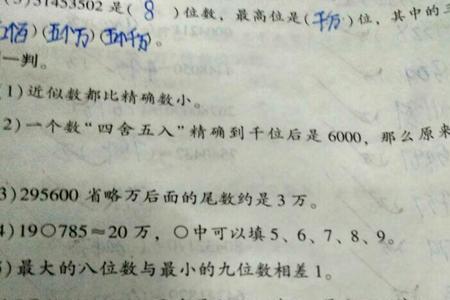 31453502是( 8 )位数，最高位是(千万)位，其中的三
(五个百)(五个万)(五个千万)。
一判。
1)近似数都比精确数小。
2)一个数“四舍五入”精确到千位后是6000，那么原来
3)295600省略万后面的尾数约是3万。
4)19○785≈20万，○中可以填5、6、7、8、9。
)最大的八位数与最小的九位数相差1。